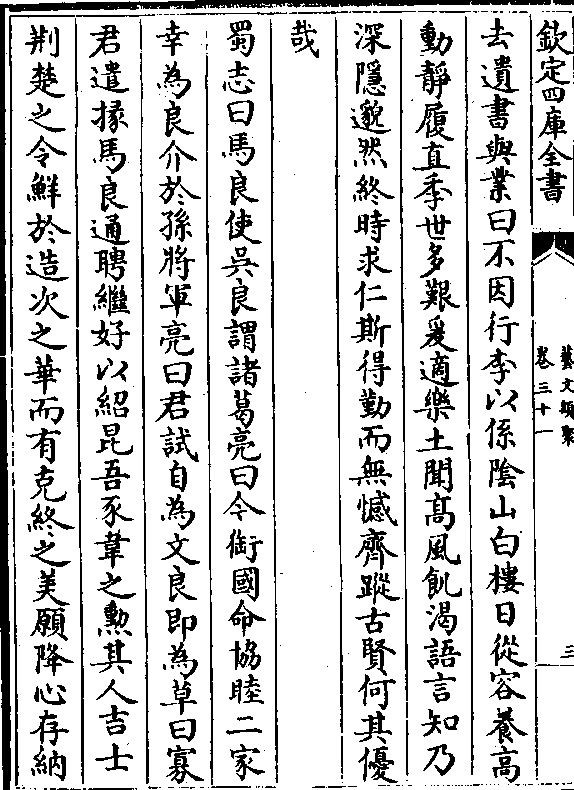 欽定四庫全書
藝文類聚
卷三十一
三
去遺書與業曰不因行李以係陰山白樓日從容養高
動靜履直季世多艱爰適樂土聞髙風飢渴語言知乃
深隱邈然終時求仁斯得勤而無憾齊蹤古賢何其優
哉
蜀志曰馬良使吳良謂諸葛亮曰今銜國命協睦二家
幸為良介於孫將軍亮曰君試自為文良即為草曰寡
君遣掾馬良通聘繼好以紹昆吾豕韋之勲其人吉士
荆楚之令鮮於造次之華而有克終之美願降心存納